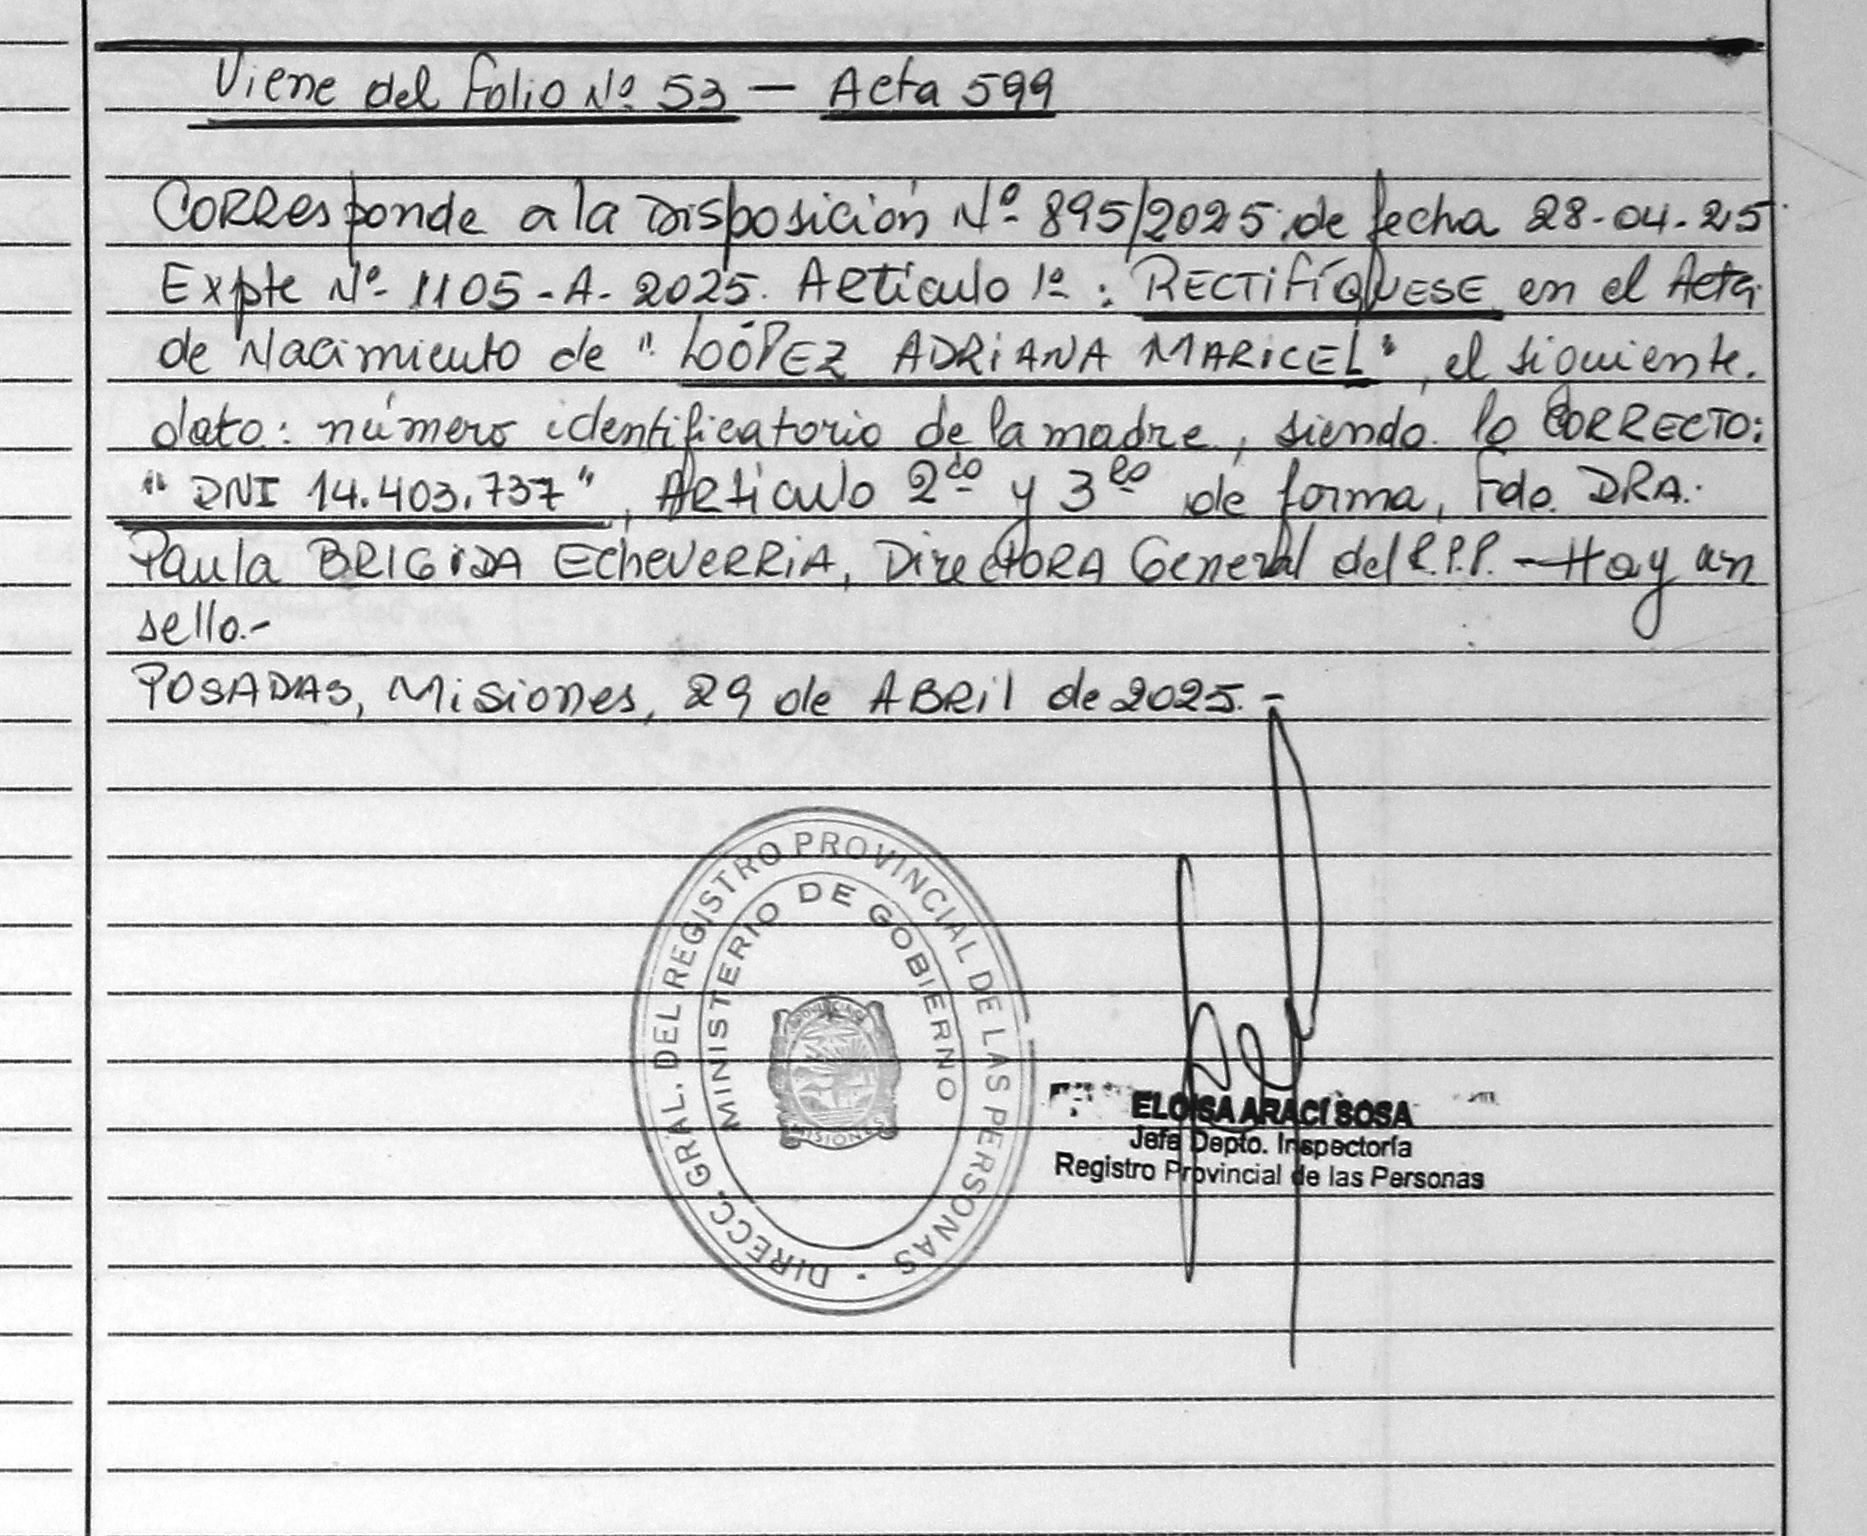 Viene del folio Nº 53 — Acta 599
Corresponde a la Disposición Nº 895/2025 de fecha 28-04-25
Expte Nº 1105-A-2025. Artículo 1º: RECTIFÍQUESE en el Acta
de Nacimiento de "LÓPEZ ADRIANA MARICEL", el siguiente.
dato: número identificatorio de la madre, siendo lo CORRECTO:
"DNI 14.403.737", Artículo 2do y 3ro de forma, Fdo. DRA.
Paula BRIGIDA EcheVERRIA, Directora General del R.P.P. — Hay un
sello.-
POSADAS, Misiones, 29 de ABRil de 2025.-
DIRECC. GRAL. DEL REGISTRO PROVINCIAL DE LAS PERSONAS
MINISTERIO DE GOBIERNO
MISIONES
ELOISA ARACI SOSA
Jefa Depto. Inspectoría
Registro Provincial de las Personas